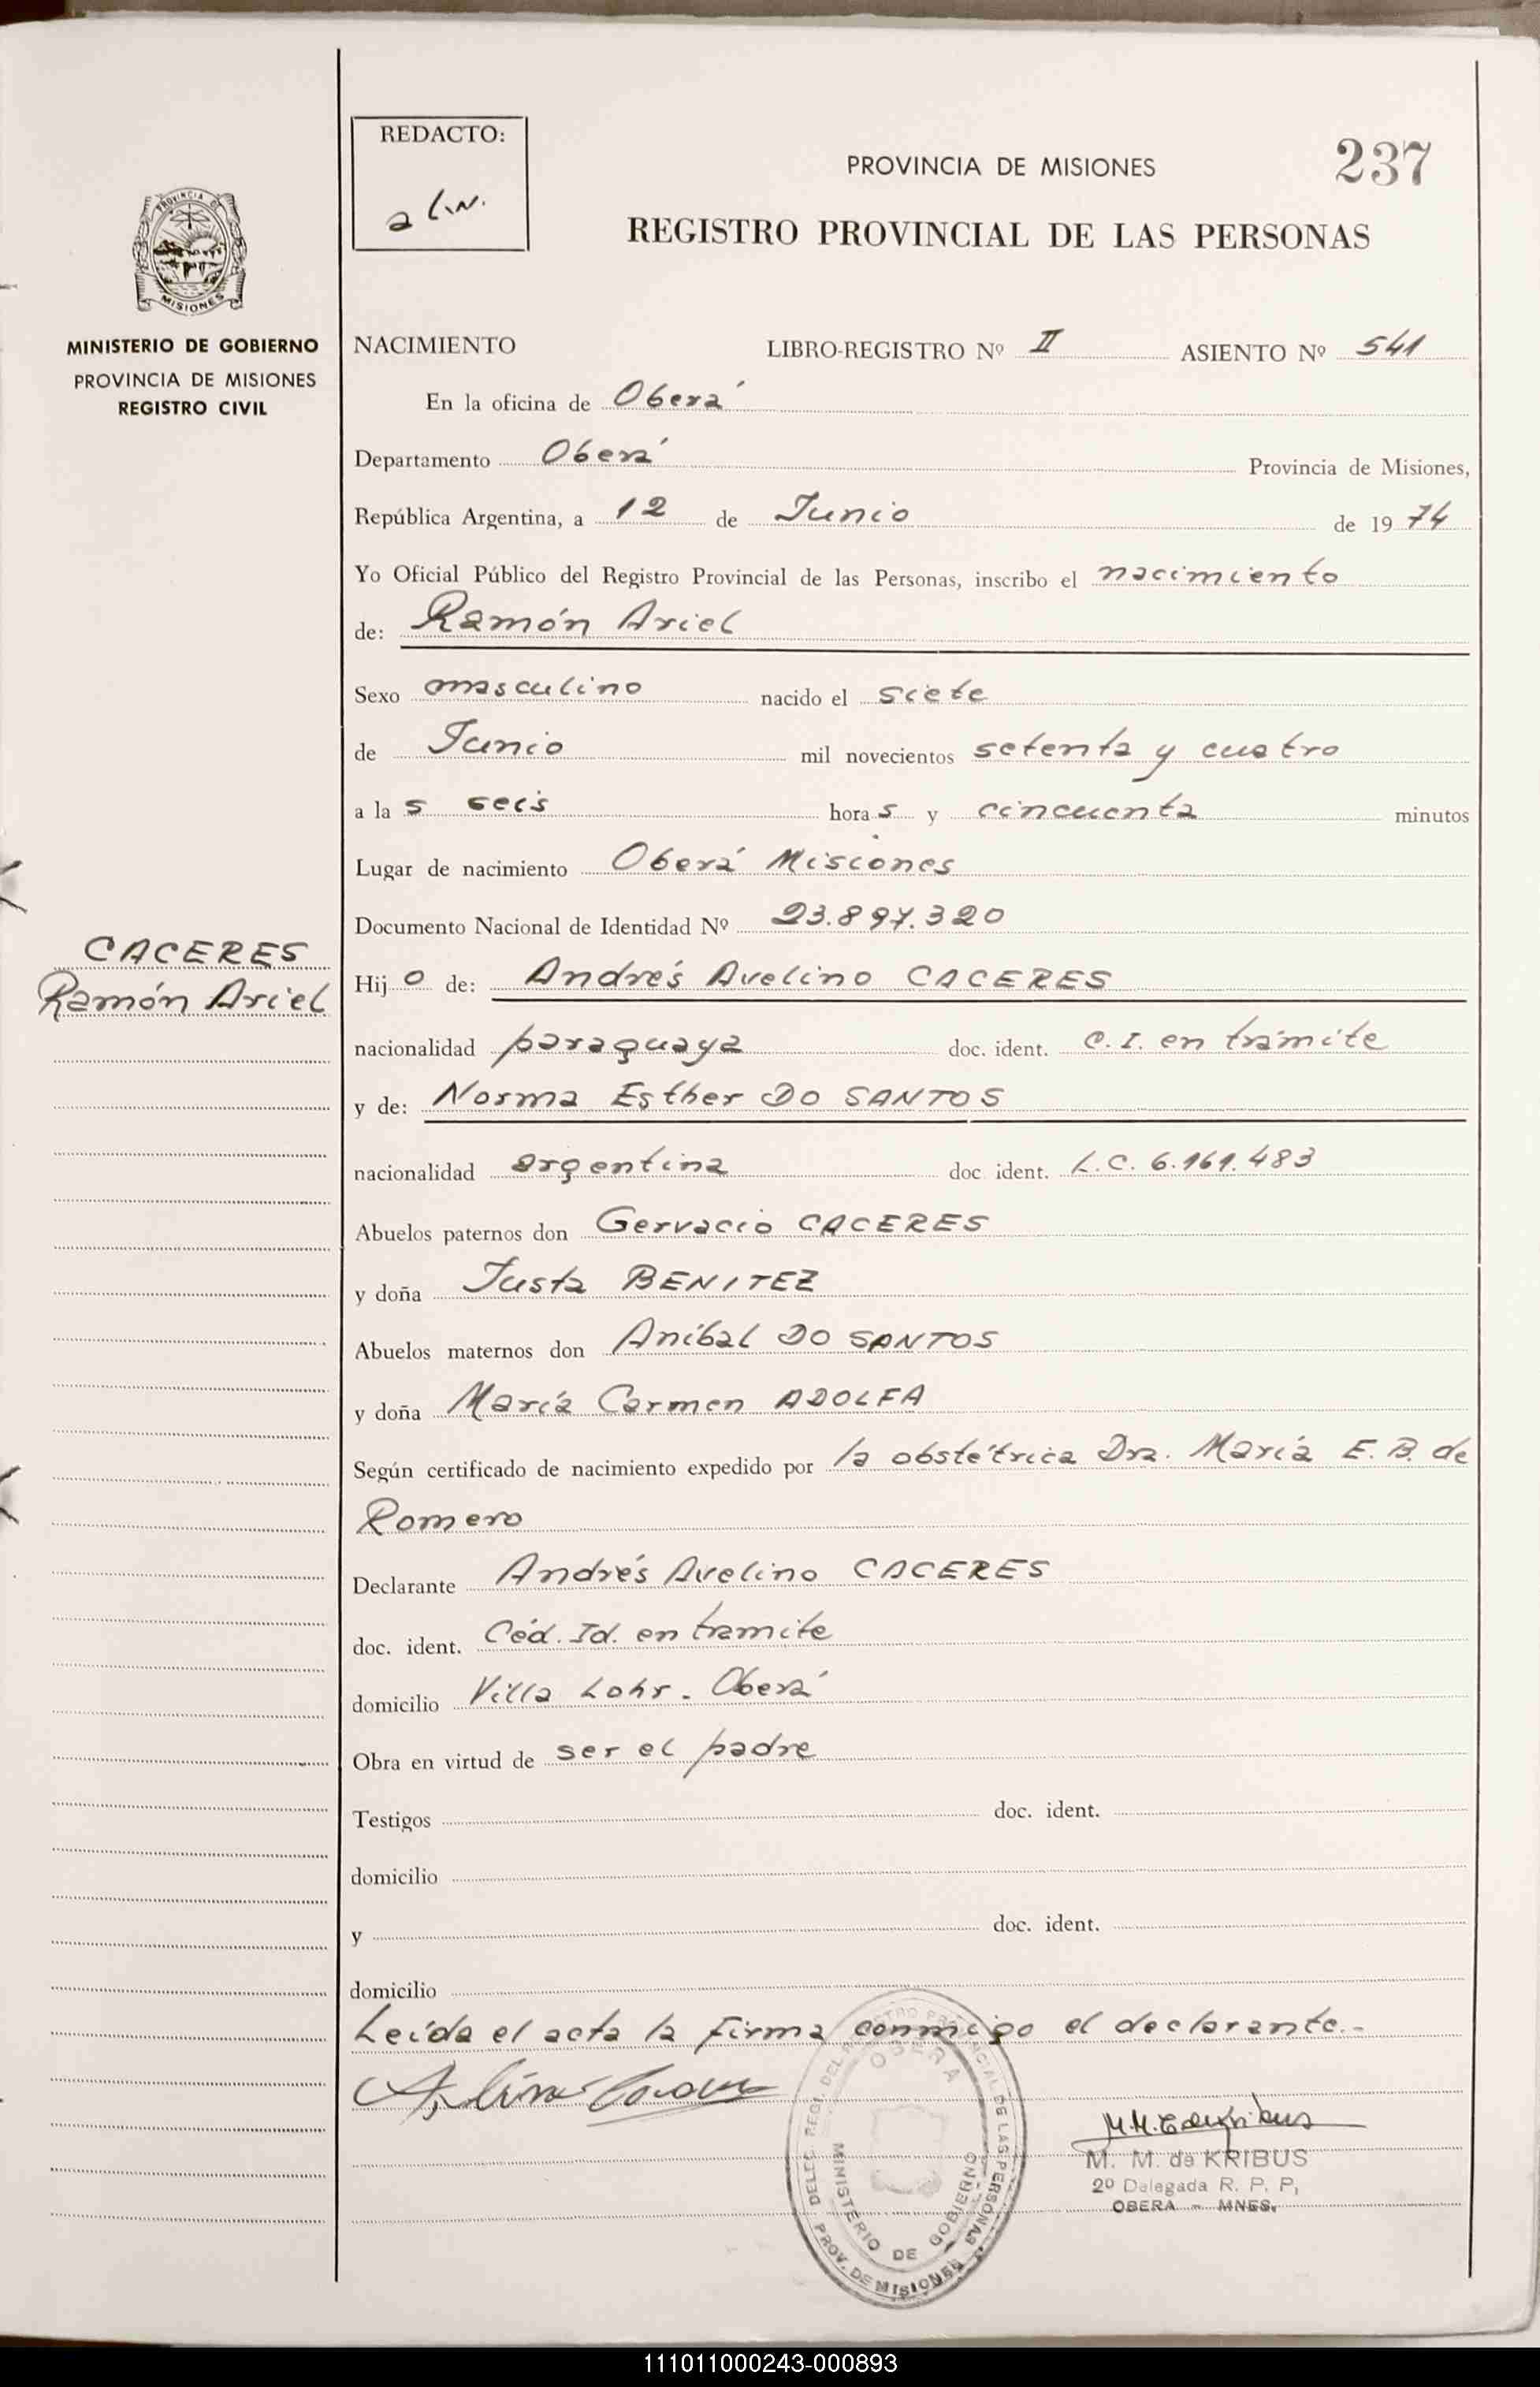 REDACTO:
PROVINCIA DE MISIONES
237
REGISTRO PROVINCIAL DE LAS PERSONAS
PROVINCIA DE
MISIONES
MINISTERIO DE GOBIERNO
PROVINCIA DE MISIONES
REGISTRO CIVIL
CACERES
Ramón Ariel
NACIMIENTO LIBRO-REGISTRO Nº II ASIENTO Nº 541
En la oficina de Oberá
Departamento Oberá Provincia de Misiones,
República Argentina, a 12 de Junio de 1974
Yo Oficial Público del Registro Provincial de las Personas, inscribo el nacimiento
de: Ramón Ariel
Sexo masculino nacido el siete
de Junio mil novecientos setenta y cuatro
a las seis horas y cincuenta minutos
Lugar de nacimiento Oberá Misiones
Documento Nacional de Identidad Nº 23.897.320
Hijo de: Andrés Avelino CACERES
nacionalidad paraguaya doc. ident. C. I. en trámite
y de: Norma Esther DO SANTOS
nacionalidad argentina doc. ident. L.C. 6.161.483
Abuelos paternos don Gervacio CACERES
y doña Justa BENITEZ
Abuelos maternos don Aníbal DO SANTOS
y doña María Carmen ADOLFA
Según certificado de nacimiento expedido por la obstétrica Dra. María E. B. de
Romero
Declarante Andrés Avelino CACERES
doc. ident. Céd. Id. en tramite
domicilio Villa Lohr - Oberá
Obra en virtud de ser el padre
Testigos doc. ident.
domicilio
y doc. ident.
domicilio
Leída el acta la firma conmigo el declarante.-
M. M. de KRIBUS
2º Delegada R. P. P,
OBERA - MNES.
DELEG. REGI. DEL REGISTRO PROVINCIAL DE LAS PERSONAS
OBERA
MINISTERIO DE GOBIERNO
PROV. DE MISIONES
111011000243-000893